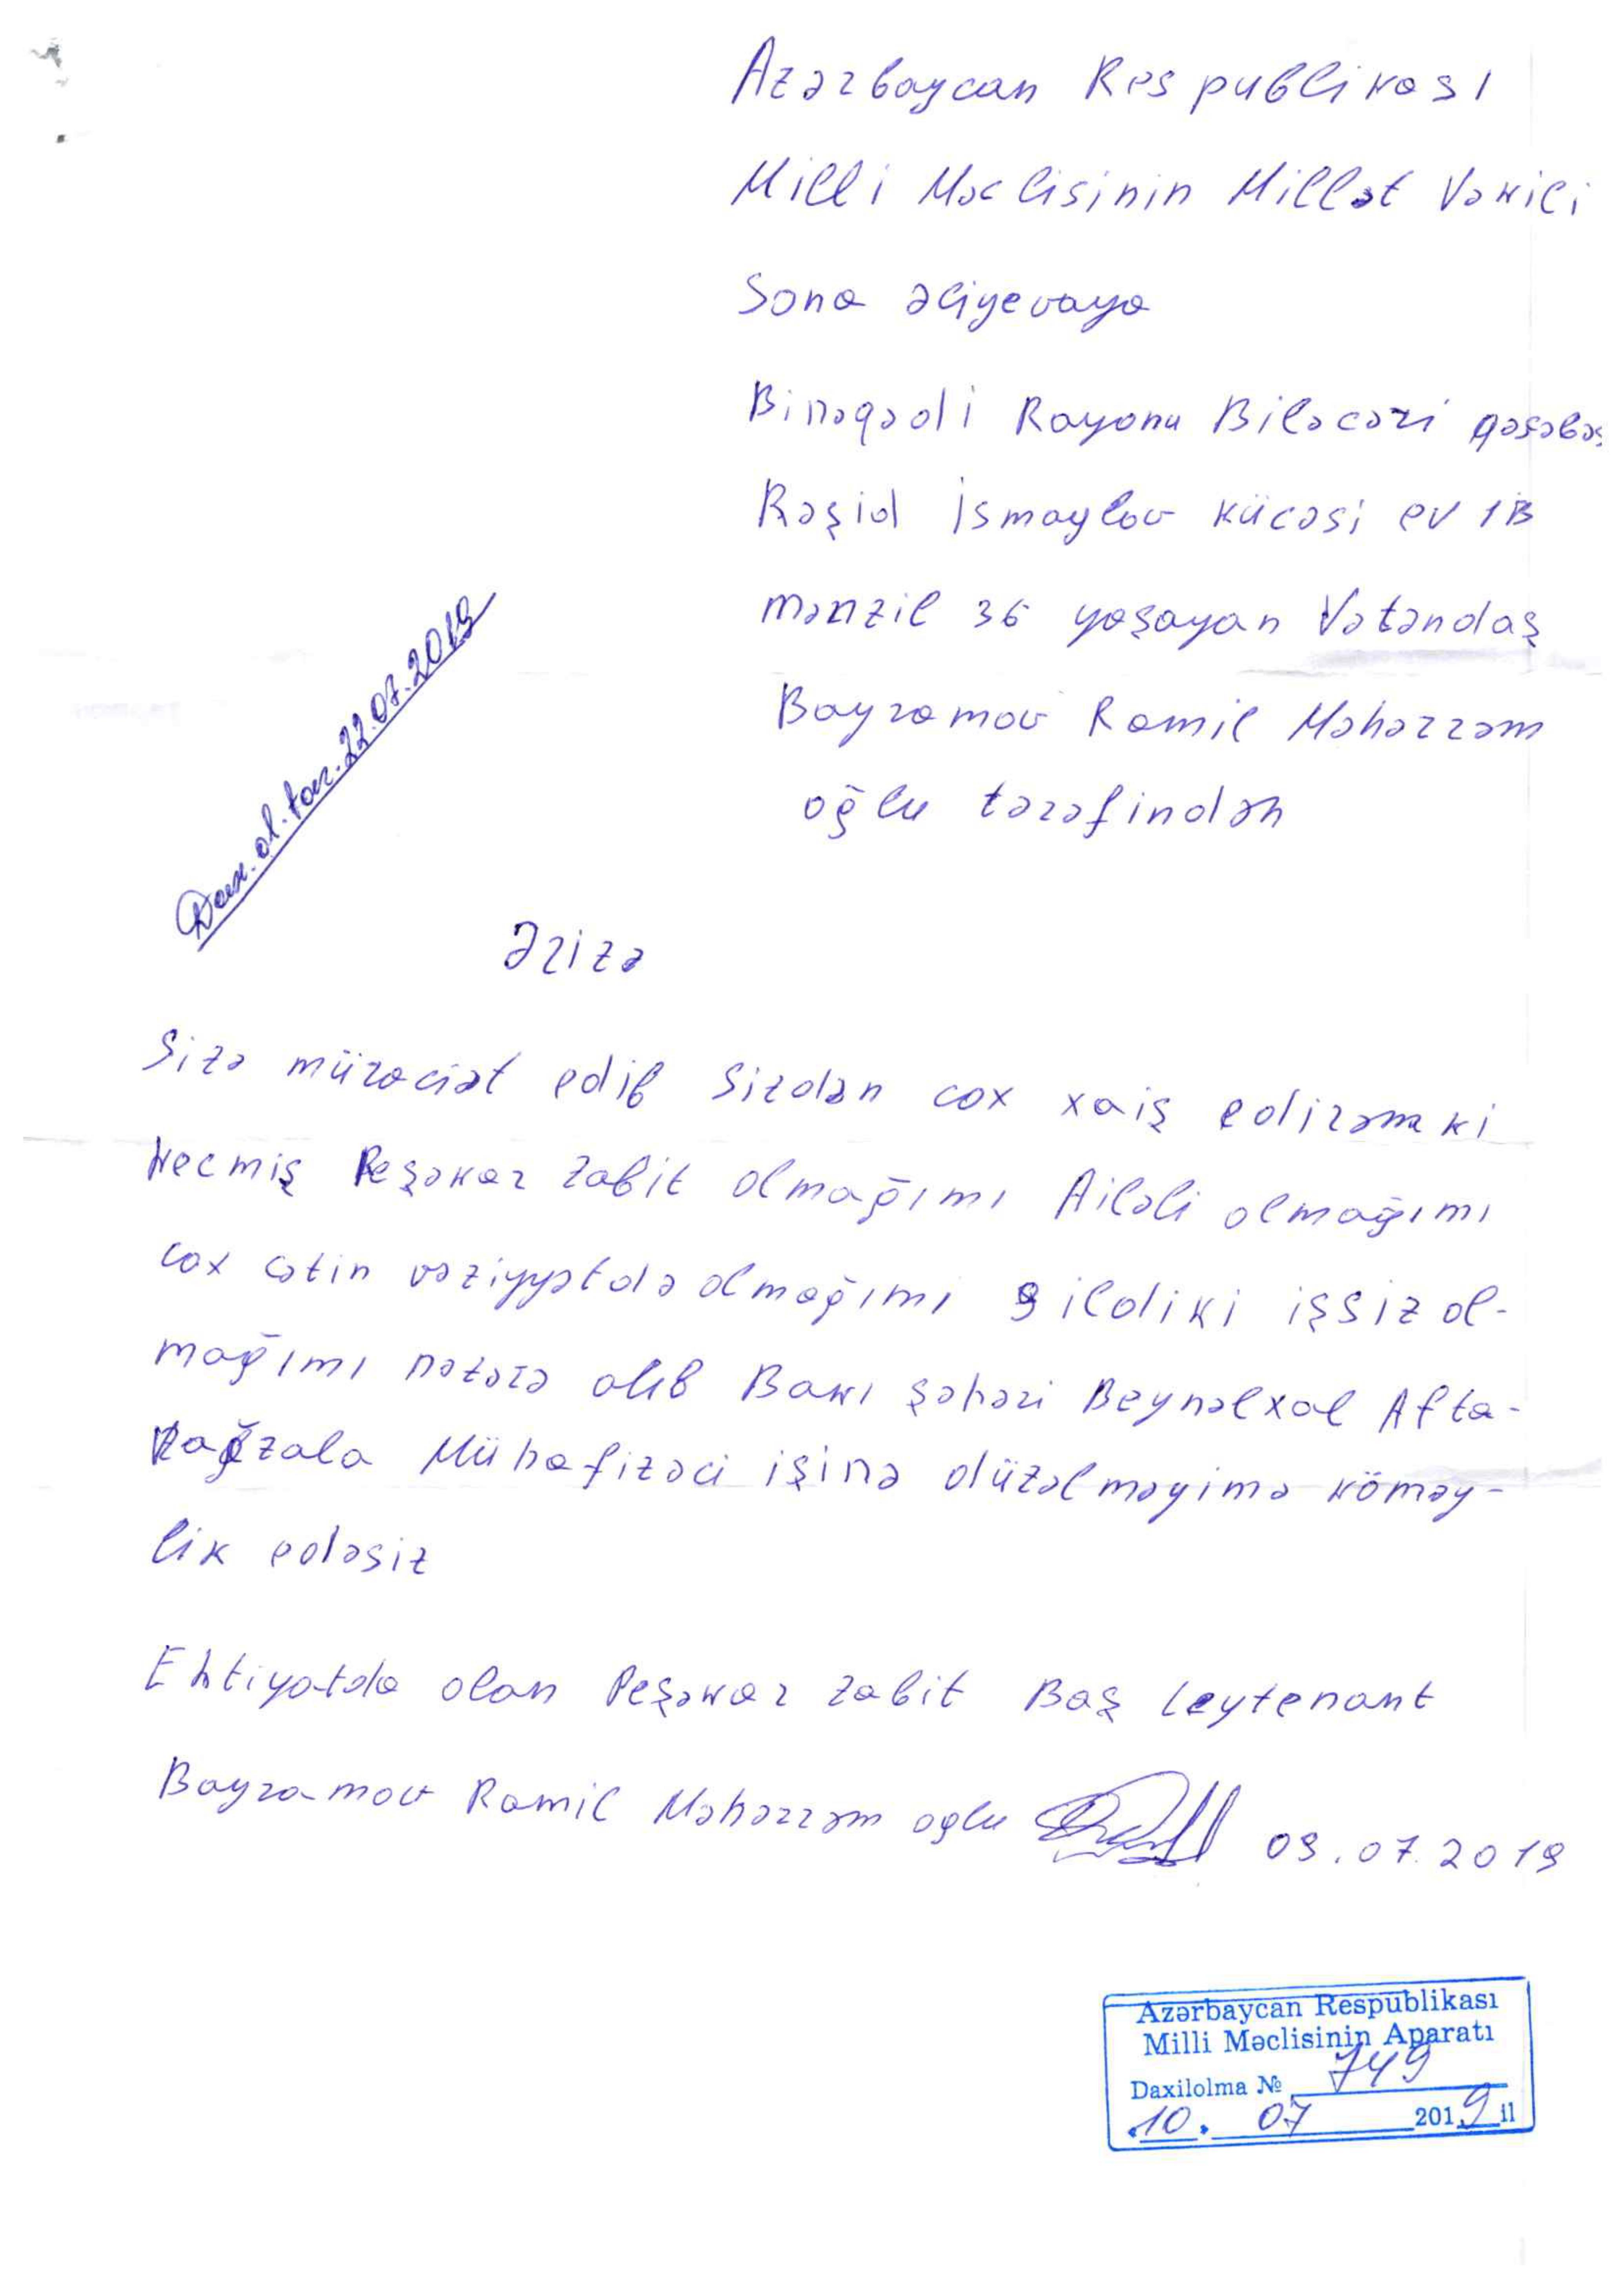 Azərbaycan Respublikası
Milli Məclisinin Millət Vəkili
Sona Əliyevaya
Binəqədi Rayonu Biləcəri qəsəbəs
Rəşid İsmaylov kücəsi ev 1B
mənzil 36 yaşayan Vətəndaş
Bayramov Ramil Məhərrəm
oğlu tərəfindən
Dax. ol. tar. 22.07.2019
Ərizə
Sizə müraciət edib Sizdən cox xaiş edirəm ki
kecmiş Peşəkar zabit olmağımı Ailəli olmağımı
cox cətin vəziyyətdə olmağımı 9 ildiki işsiz ol-
mağımı nəzərə alıb Bakı şəhəri Beynəlxal Afta-
Vağzala Mühafizəci işinə düzəlməyimə köməy-
lik edəsiz
Ehtiyatda olan Peşəkar zabit Baş leytenant
Bayramov Ramil Məhərrəm oglu 09.07.2019
Azərbaycan Respublikası
Milli Məclisinin Aparatı
Daxilolma № 749
"10" 07 2019 il